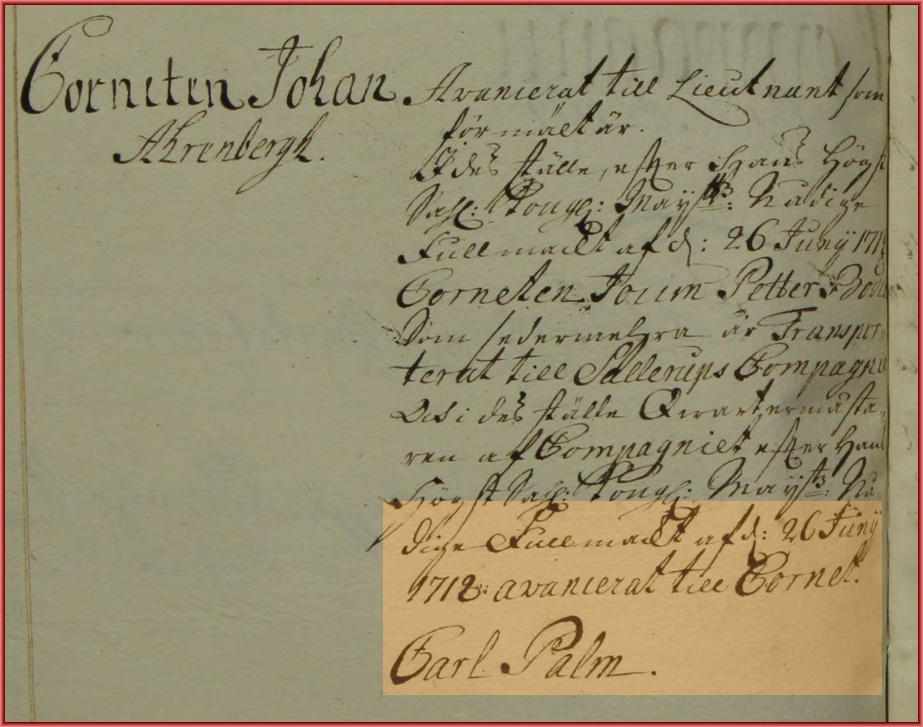 Corneten Johan
Ahrenbergh.
Avancerat till Lieutnant som
förmält är.
I des ställe, efter Hans Högst
Sahl: Kongl: Mayst:tz: Nådige
Fullmackt af d: 26 Juny 171
Corneten Joum Petter
Som sedermehra är Transpor
terat till Sallerups Compagnie
Och i des ställe Qwartermästa,
ren af Compagniet efter Hans
Högst Sahl: Kongl: Mayst:tz: Nå,
dige Fullmackt af d: 26 Juny
1718: avancerat till Cornet.
Carl Palm.